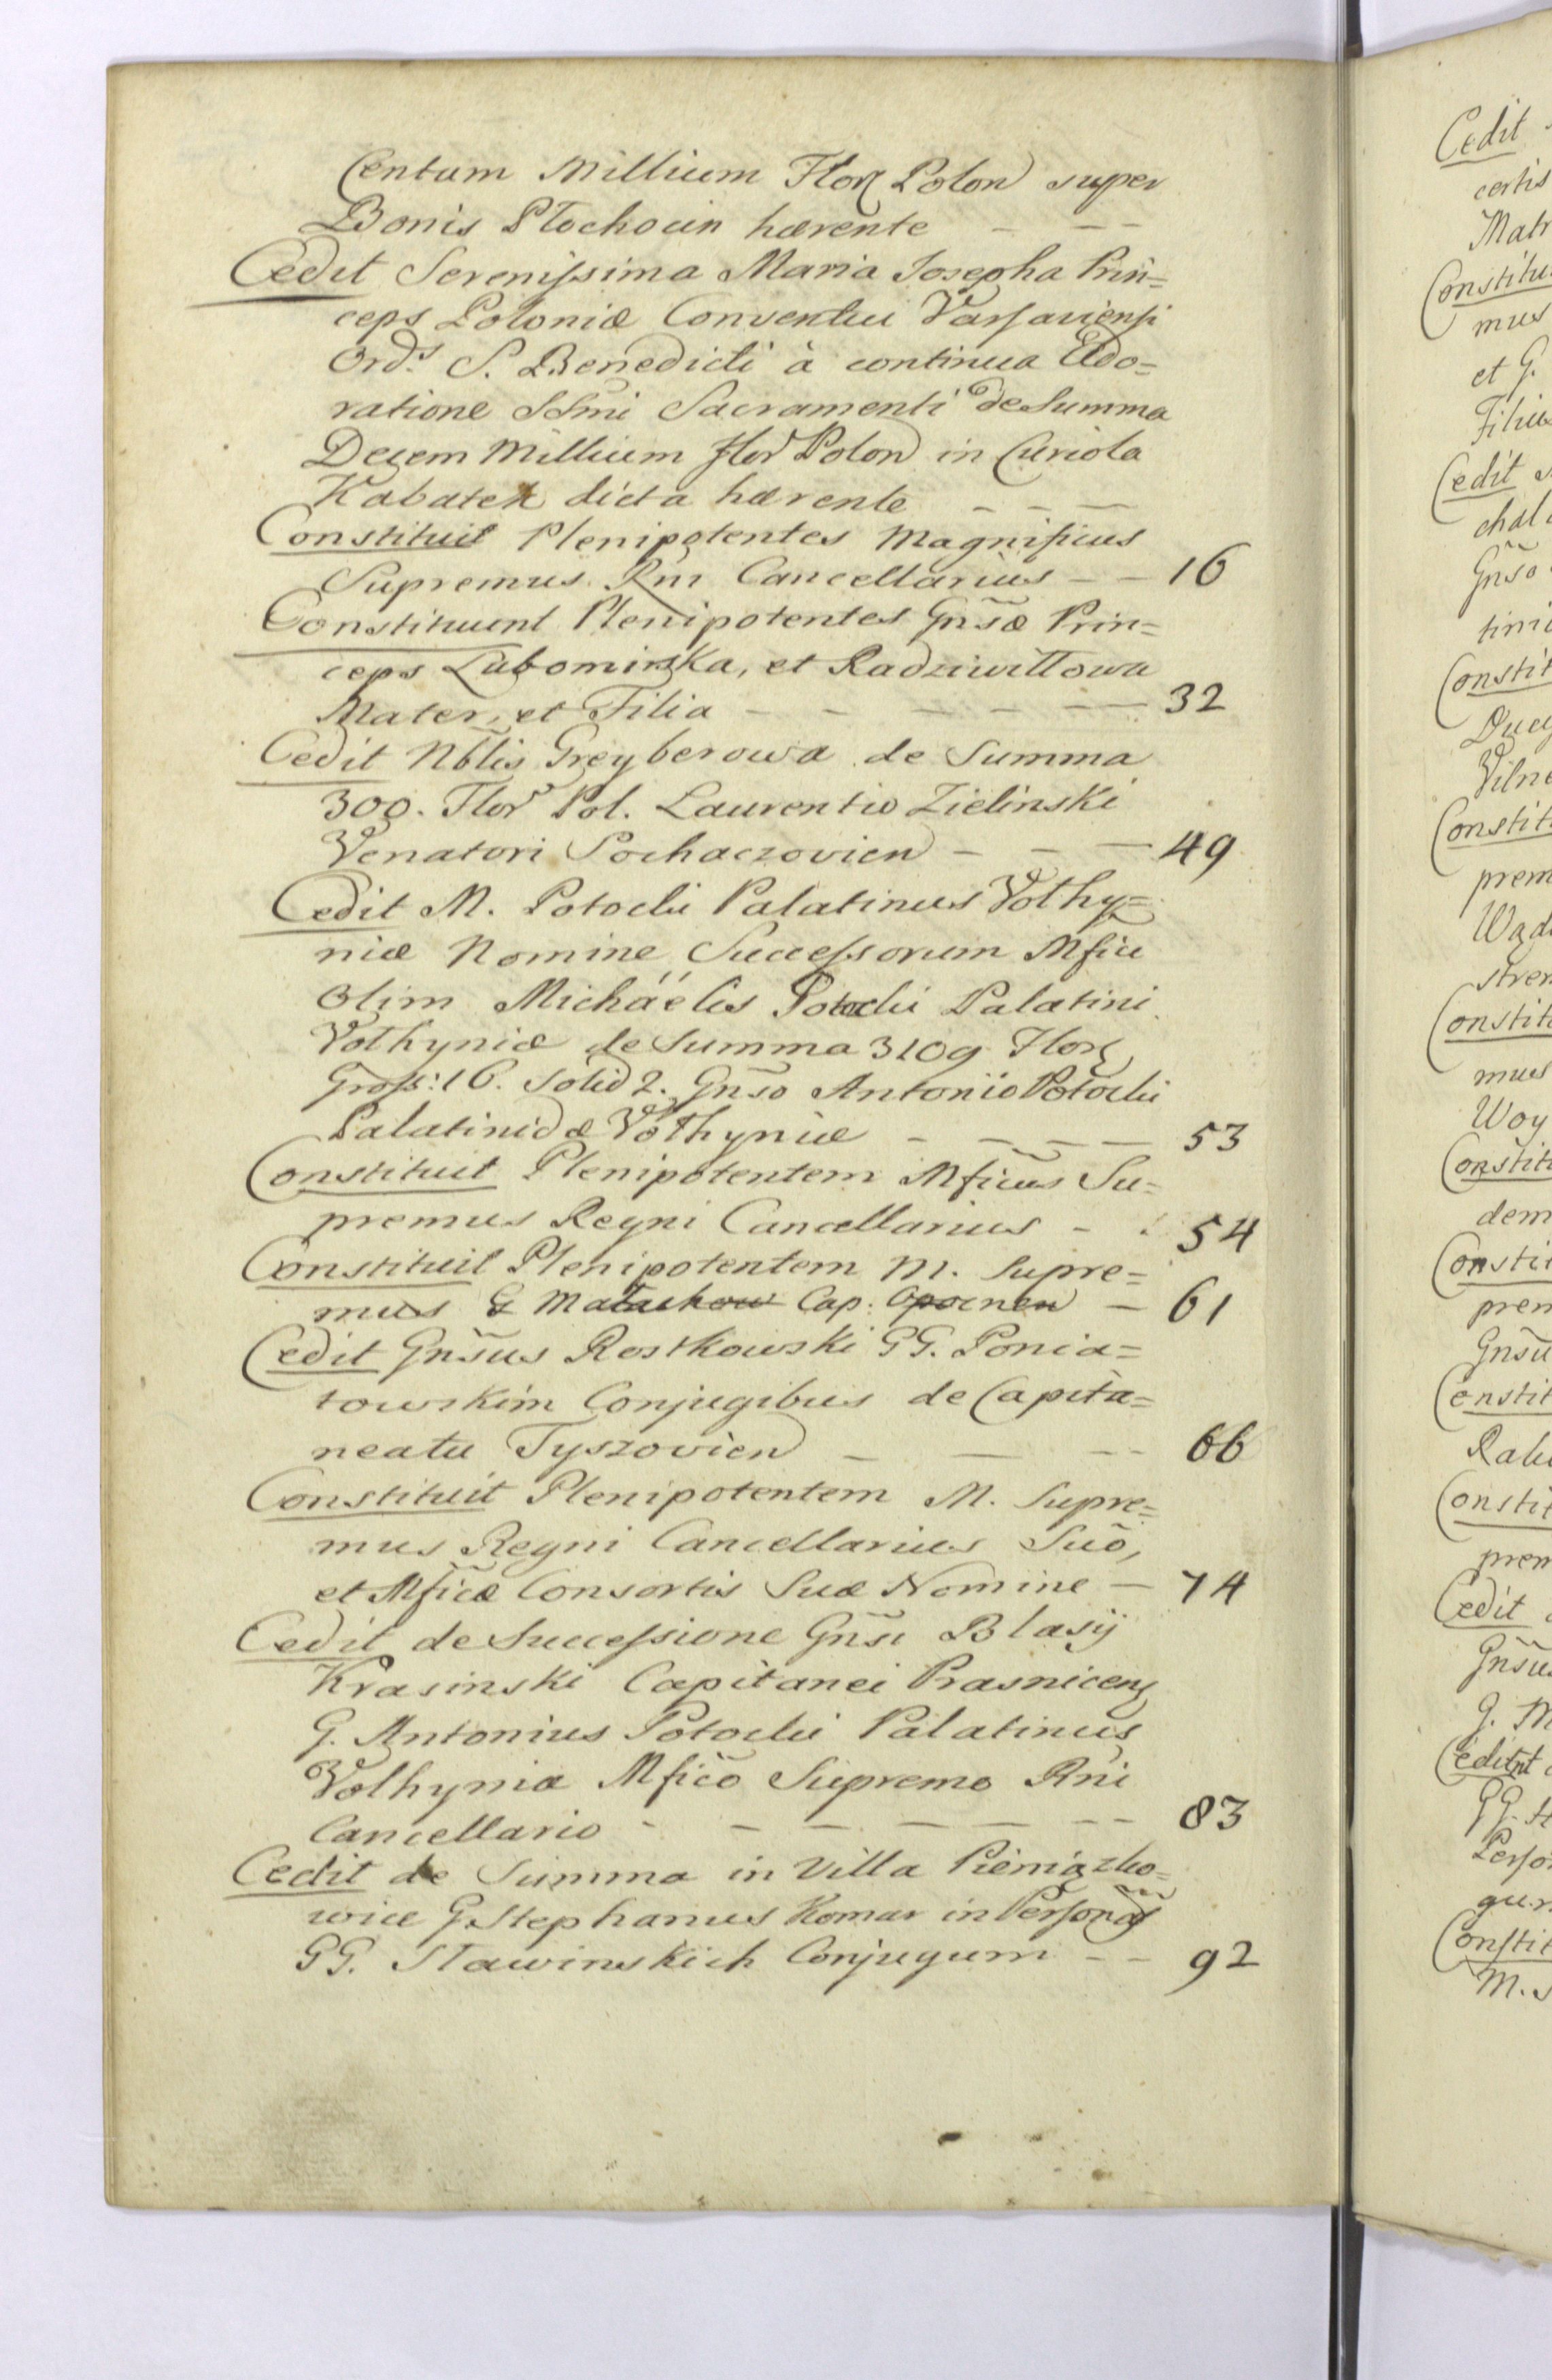 Centum Millium Flor Polon super
Bonis Płochocin hærente - - -
Cedit Serenissima Maria Josepha Prin=
ceps Poloniæ Conventui Varsaviensi
Ord: S. Benedicti à continua Ado=
ratione SSmi Sacramenti de Summa
Decem Millium Flor Polon in Curiola
Kabatek dicta hærente - - -
Constituit Plenipotentes Magnificus
Supremus Rni Cancellarius - - 16
Constituunt Plenipotentes Gnsæ Prin=
ceps Lubomirska, et Radziwiłłowa
Mater, et Filia - - - - - 32
Cedit Nblis Greyberowa de Summa
300. Flor Pol. Laurentio Zielinski
Venatori Sochaczovien - - - 49
Cedit M. Potocki Palatinus Volhy=
niæ Nomine Successorum Mfici
Olim Michaëlis Potocki Palatini
Volhyniæ de Summa 3109 Flor
Gross: 16. Solid 2. Gnso Antonio Potocki
Palatinidæ Volhyniæ - - - - 53
Constituit Plenipotentem Mficus Su=
premus Regni Cancellarius - 54
Constituit Plenipotentem M. Supre=
mus G Małachow Cap: Opocnen - 61
Cedit Gnsus Rostkowski GG. Ponia=
towskim Conjugibus de Capita=
neatu Tyszovien - - - 66
Constituit Plenipotentem M. Supre=
mus Regni Cancellarius Suo,
et Mficæ Consortis Suæ Nomine - 74
Cedit de Successione Gnsi Blasij
Krasinski Capitanei Prasnicens
G. Antonius Potocki Palatinus
Volhyniæ Mfico Supremo Rni
Cancellario - - - - - - 83
Cedit de Summa in Villa Pieniążko=
wice G. Stephanus Komar in Personas
GG. Sławinskich Conjugum - - 92
Cedit
certis
Matr
Constitu
mus
et G.
Filius
Cedit
chal
Gnso
tini
Constit
Ducis
Vilne
Constit
prem
Wad
stren
Constit
mus
Woy
Constit
dem
Constit
prem
Gnsu
Constit
Constit
prem
Cedit
Gnsus
G. M
Cedunt
GG. H
Perso
gum
Constit
M. S